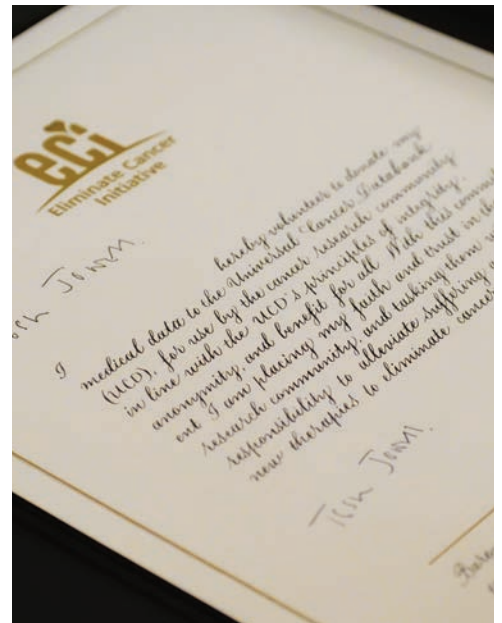 eci
Eliminate Cancer
Initiative
I hereby volunteer to donate my
medical data to the Universal Cancer Databank
(UCD), for use by the cancer research community
in line with the UCD's principles of integrity,
anonymity, and benefit for all. With this
I am placing my faith and trust in
research community, and tasking them
responsibility to alleviate suffering
new therapies to eliminate